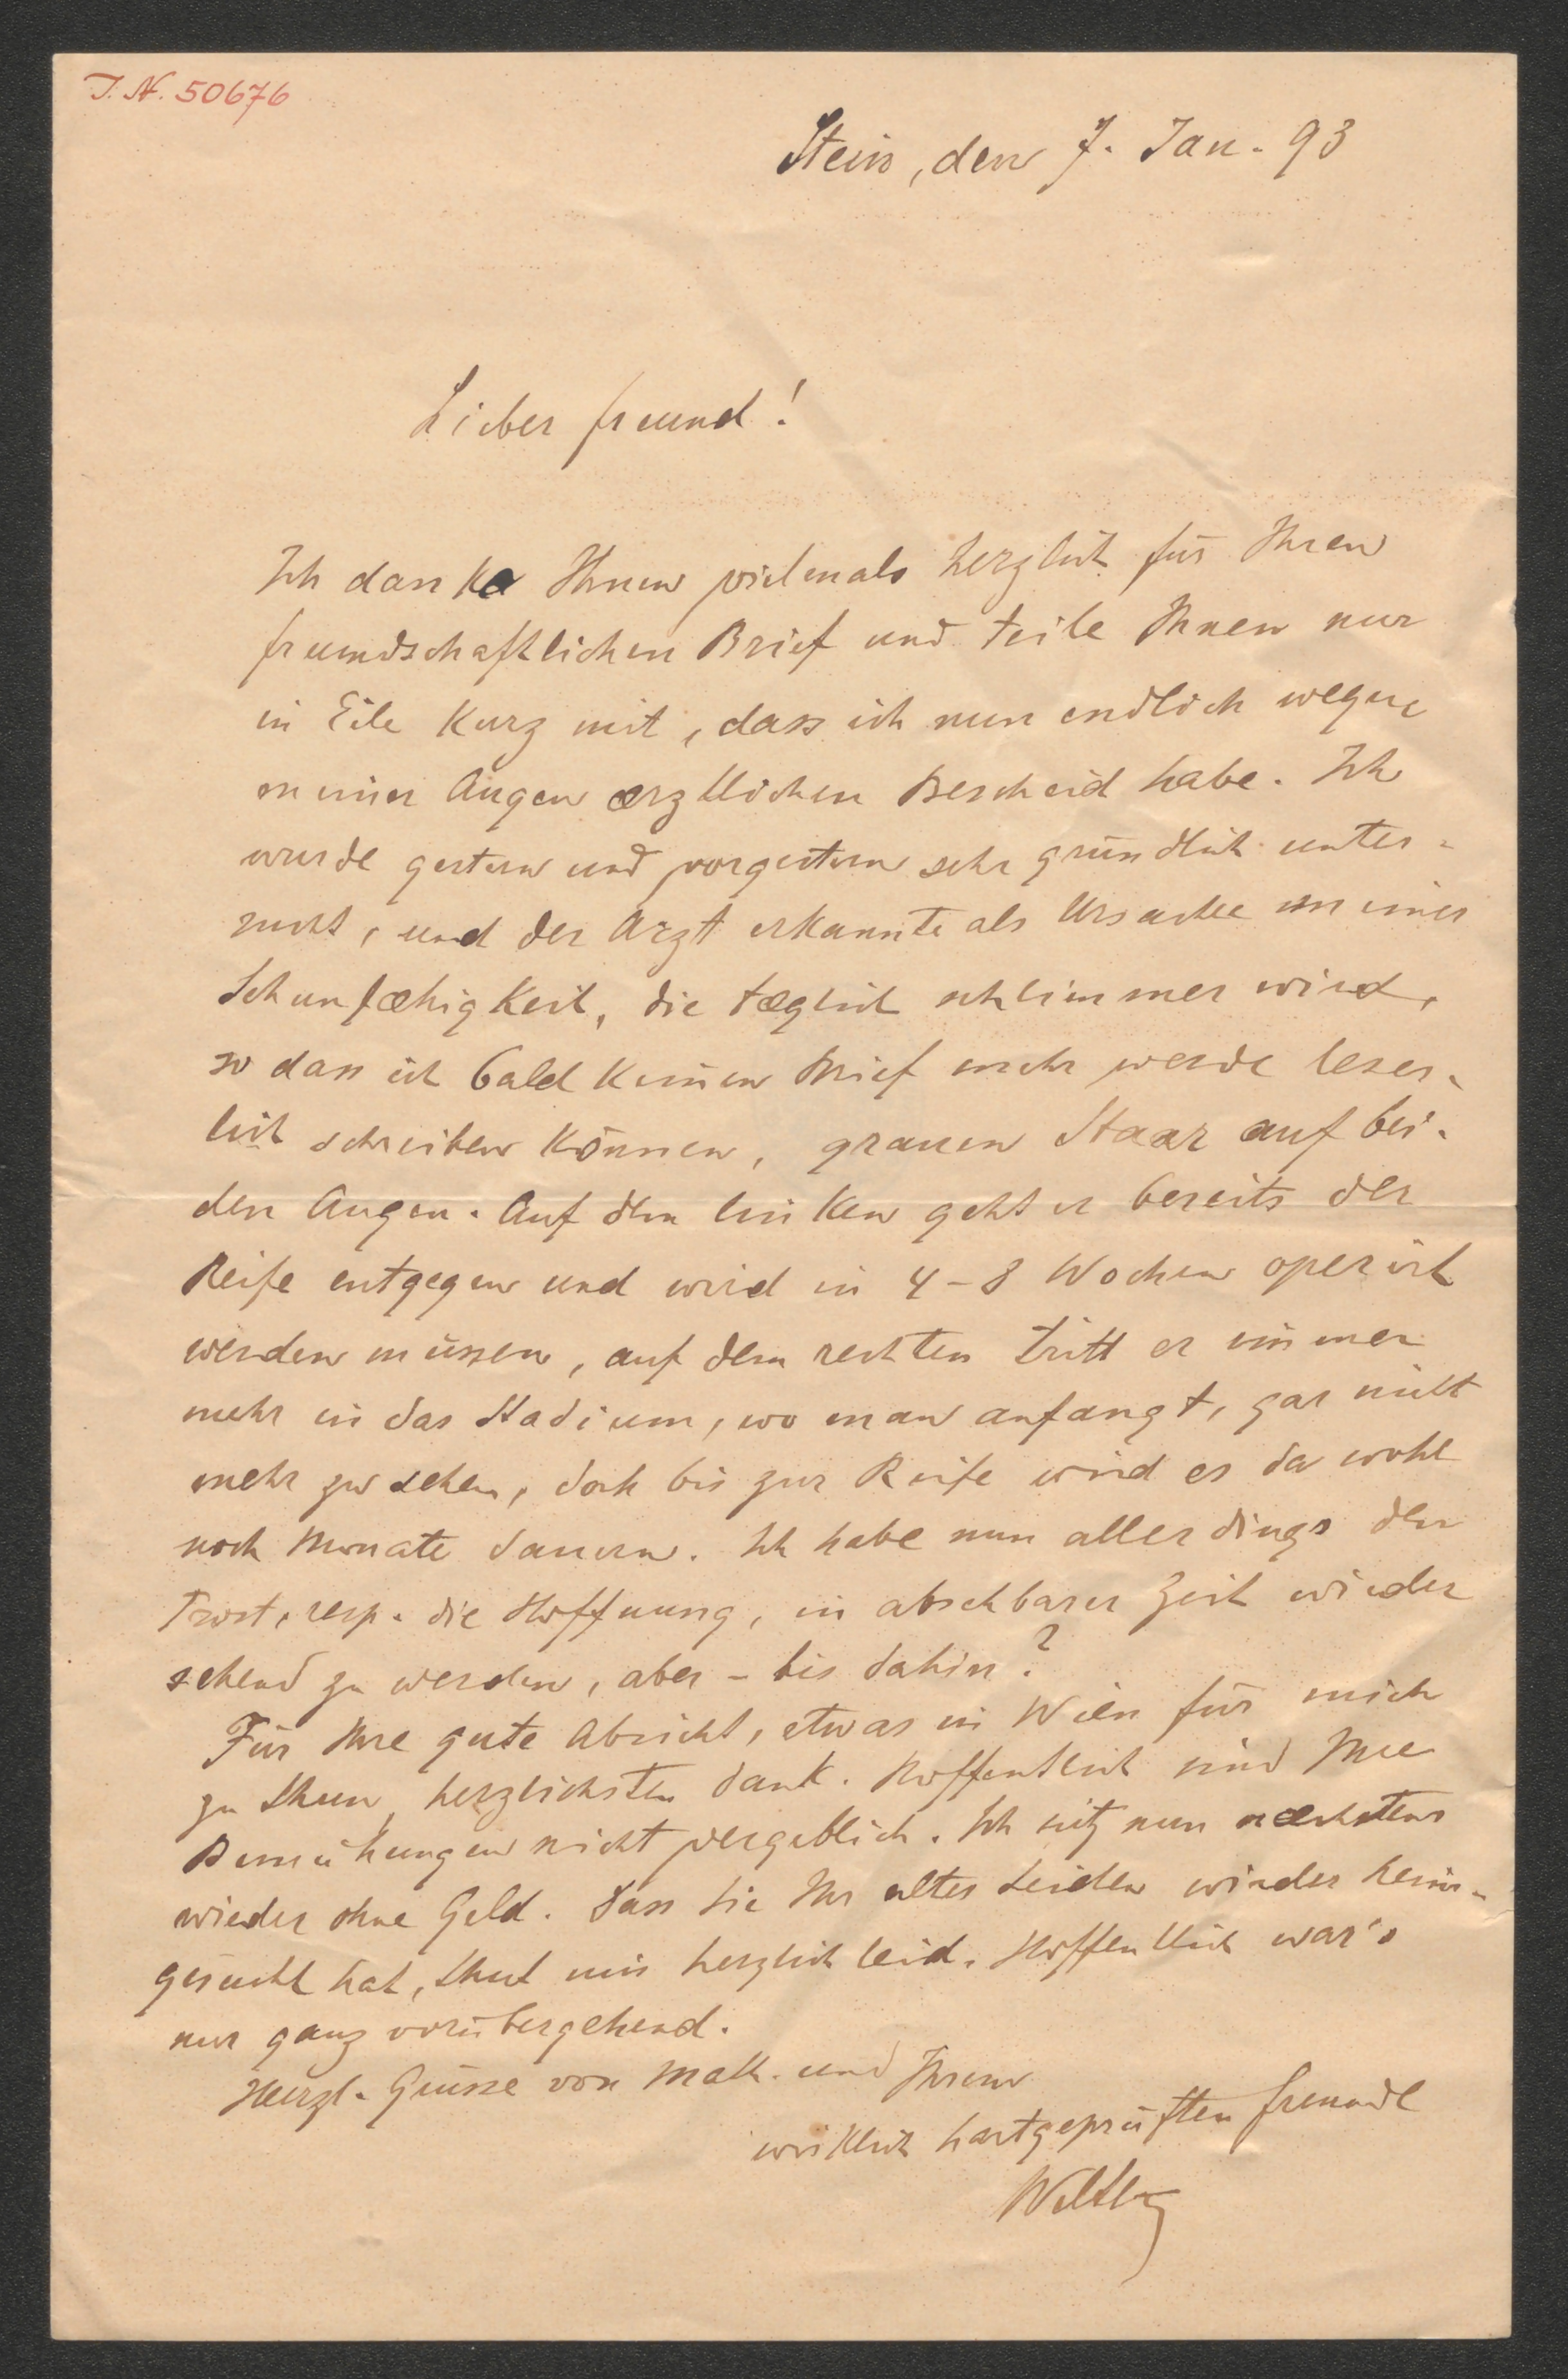 J. N. 50676
Stein, den 7. Jan. 93
Lieber Freund!
Ich danke Ihnen vielmals herzlich für Ihren
freundschaftlichen Brief und teile Ihnen nur
in Eile kurz mit, dass ich nun endlich wegen
meiner Augen ærztlichen Bescheid habe. Ich
wurde gestern und vorgestern sehr gründlich unter-
sucht, und der Arzt erkannte als Ursache meiner
Sehunfæhigkeit, die tæglich schlimmer wird,
so dass ich bald keinen Brief mehr werde leser-
lich schreiben können, grauen Staar auf bei-
den Augen. Auf dem linken geht er bereits der
Reife entgegen und wird in 4-8 Wochen operirt
werden müssen, auf dem rechten tritt er immer
mehr in das Stadium, wo man anfangt, gar nicht
mehr zu sehen, doch bis zur Reife wird es da wohl
noch Monate dauern. Ich habe nun allerdings den
Trost, resp. die Hoffnung, in absehbarer Zeit wieder
sehend zu werden, aber - bis dahin?
Für Ihre gute Absicht, etwas in Wien für mich
zu thun, herzlichsten Dank. Hoffentlich sind Ihre
Bemühungen nicht vergeblich. Ich sitz nun næchstens
wieder ohne Geld. Dass Sie Ihr altes Leiden wieder heim-
gesucht hat, thut mir herzlich leid. Hoffentlich war's
nur ganz vorübergehend.
Herzl. Grüsse von Math. und Ihrem
wirklich hartgeprüften Freunde